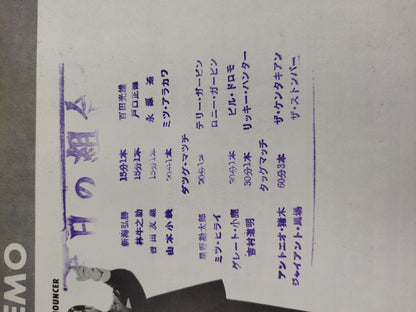 日の組合
新海弘勝 15分1本 百田光雄
林牛之助 15分1本 戸口正徳
15分1本 永源遙
山本小鉄 20分1本 ミツ・アラカワ
タッグ・マッチ
星野勘太郎 20分1本 テリー・ガービン
ミツ・ヒライ ロニー・ガービン
グレート・小鹿 30分1本 ビル・ドロモ
吉村道明 30分1本 リッキー・ハンター
タッグマッチ
アントニオ・猪木 60分3本 ザ・ケンタキアン
ジャイアント・馬場 ザ・ストンパー
EMO
OUNCER